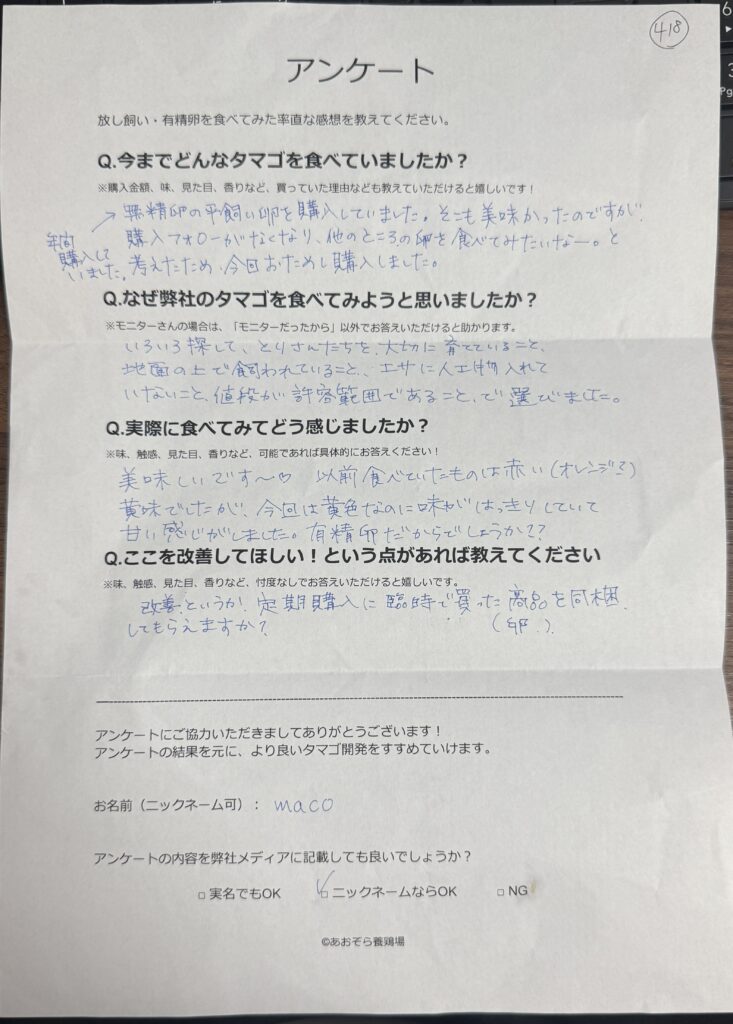 418
アンケート
放し飼い・有精卵を食べてみた率直な感想を教えてください。
Q.今までどんなタマゴを食べていましたか？
※購入金額、味、見た目、香りなど、買っていた理由なども教えていただけると嬉しいです！
→無精卵の平飼い卵を購入していました。そこも美味かったのですが、
年間
購入して
いました。
購入フォローがなくなり、他のところの卵を食べてみたいなー。と
考えたため、今回おためし購入しました。
Q.なぜ弊社のタマゴを食べてみようと思いましたか？
※モニターさんの場合は、「モニターだったから」以外でお答えいただけると助かります。
いろいろ探して、とりさんたちを、大切に育てていること、
地面の上で飼われていること、エサに人工物入れて
いないこと、値段が許容範囲であること、で選びました。
Q.実際に食べてみてどう感じましたか？
※味、触感、見た目、香りなど、可能であれば具体的にお答えください！
美味しいです〜♡ 以前食べていたものは赤い(オレンジ？)
黄味でしたが、今回は黄色なのに味がはっきりしていて
甘い感じがしました。有精卵だからでしょうか??
Q.ここを改善してほしい！という点があれば教えてください
※味、触感、見た目、香りなど、忖度なしでお答えいただけると嬉しいです。
改善というか、定期購入に臨時で買った商品を同梱
してもらえますか？
(卵、)
アンケートにご協力いただきましてありがとうございます！
アンケートの結果を元に、より良いタマゴ開発をすすめていけます。
お名前（ニックネーム可）： maco
アンケートの内容を弊社メディアに記載しても良いでしょうか？
□ 実名でもOK ☑ ニックネームならOK □ NG
©あおぞら養鶏場